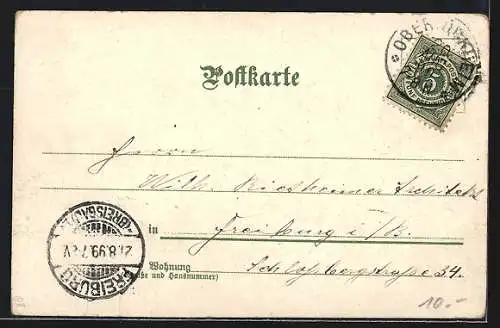 Postkarte
Herrn
Wilh. Riesheimer Architekt
in Freiburg i/B.
Wohnung Schloßbergstraße 34.
(Straße und Hausnummer)
FREIBURG
21.8.99.7-8V
(BREISGAU)
10.-